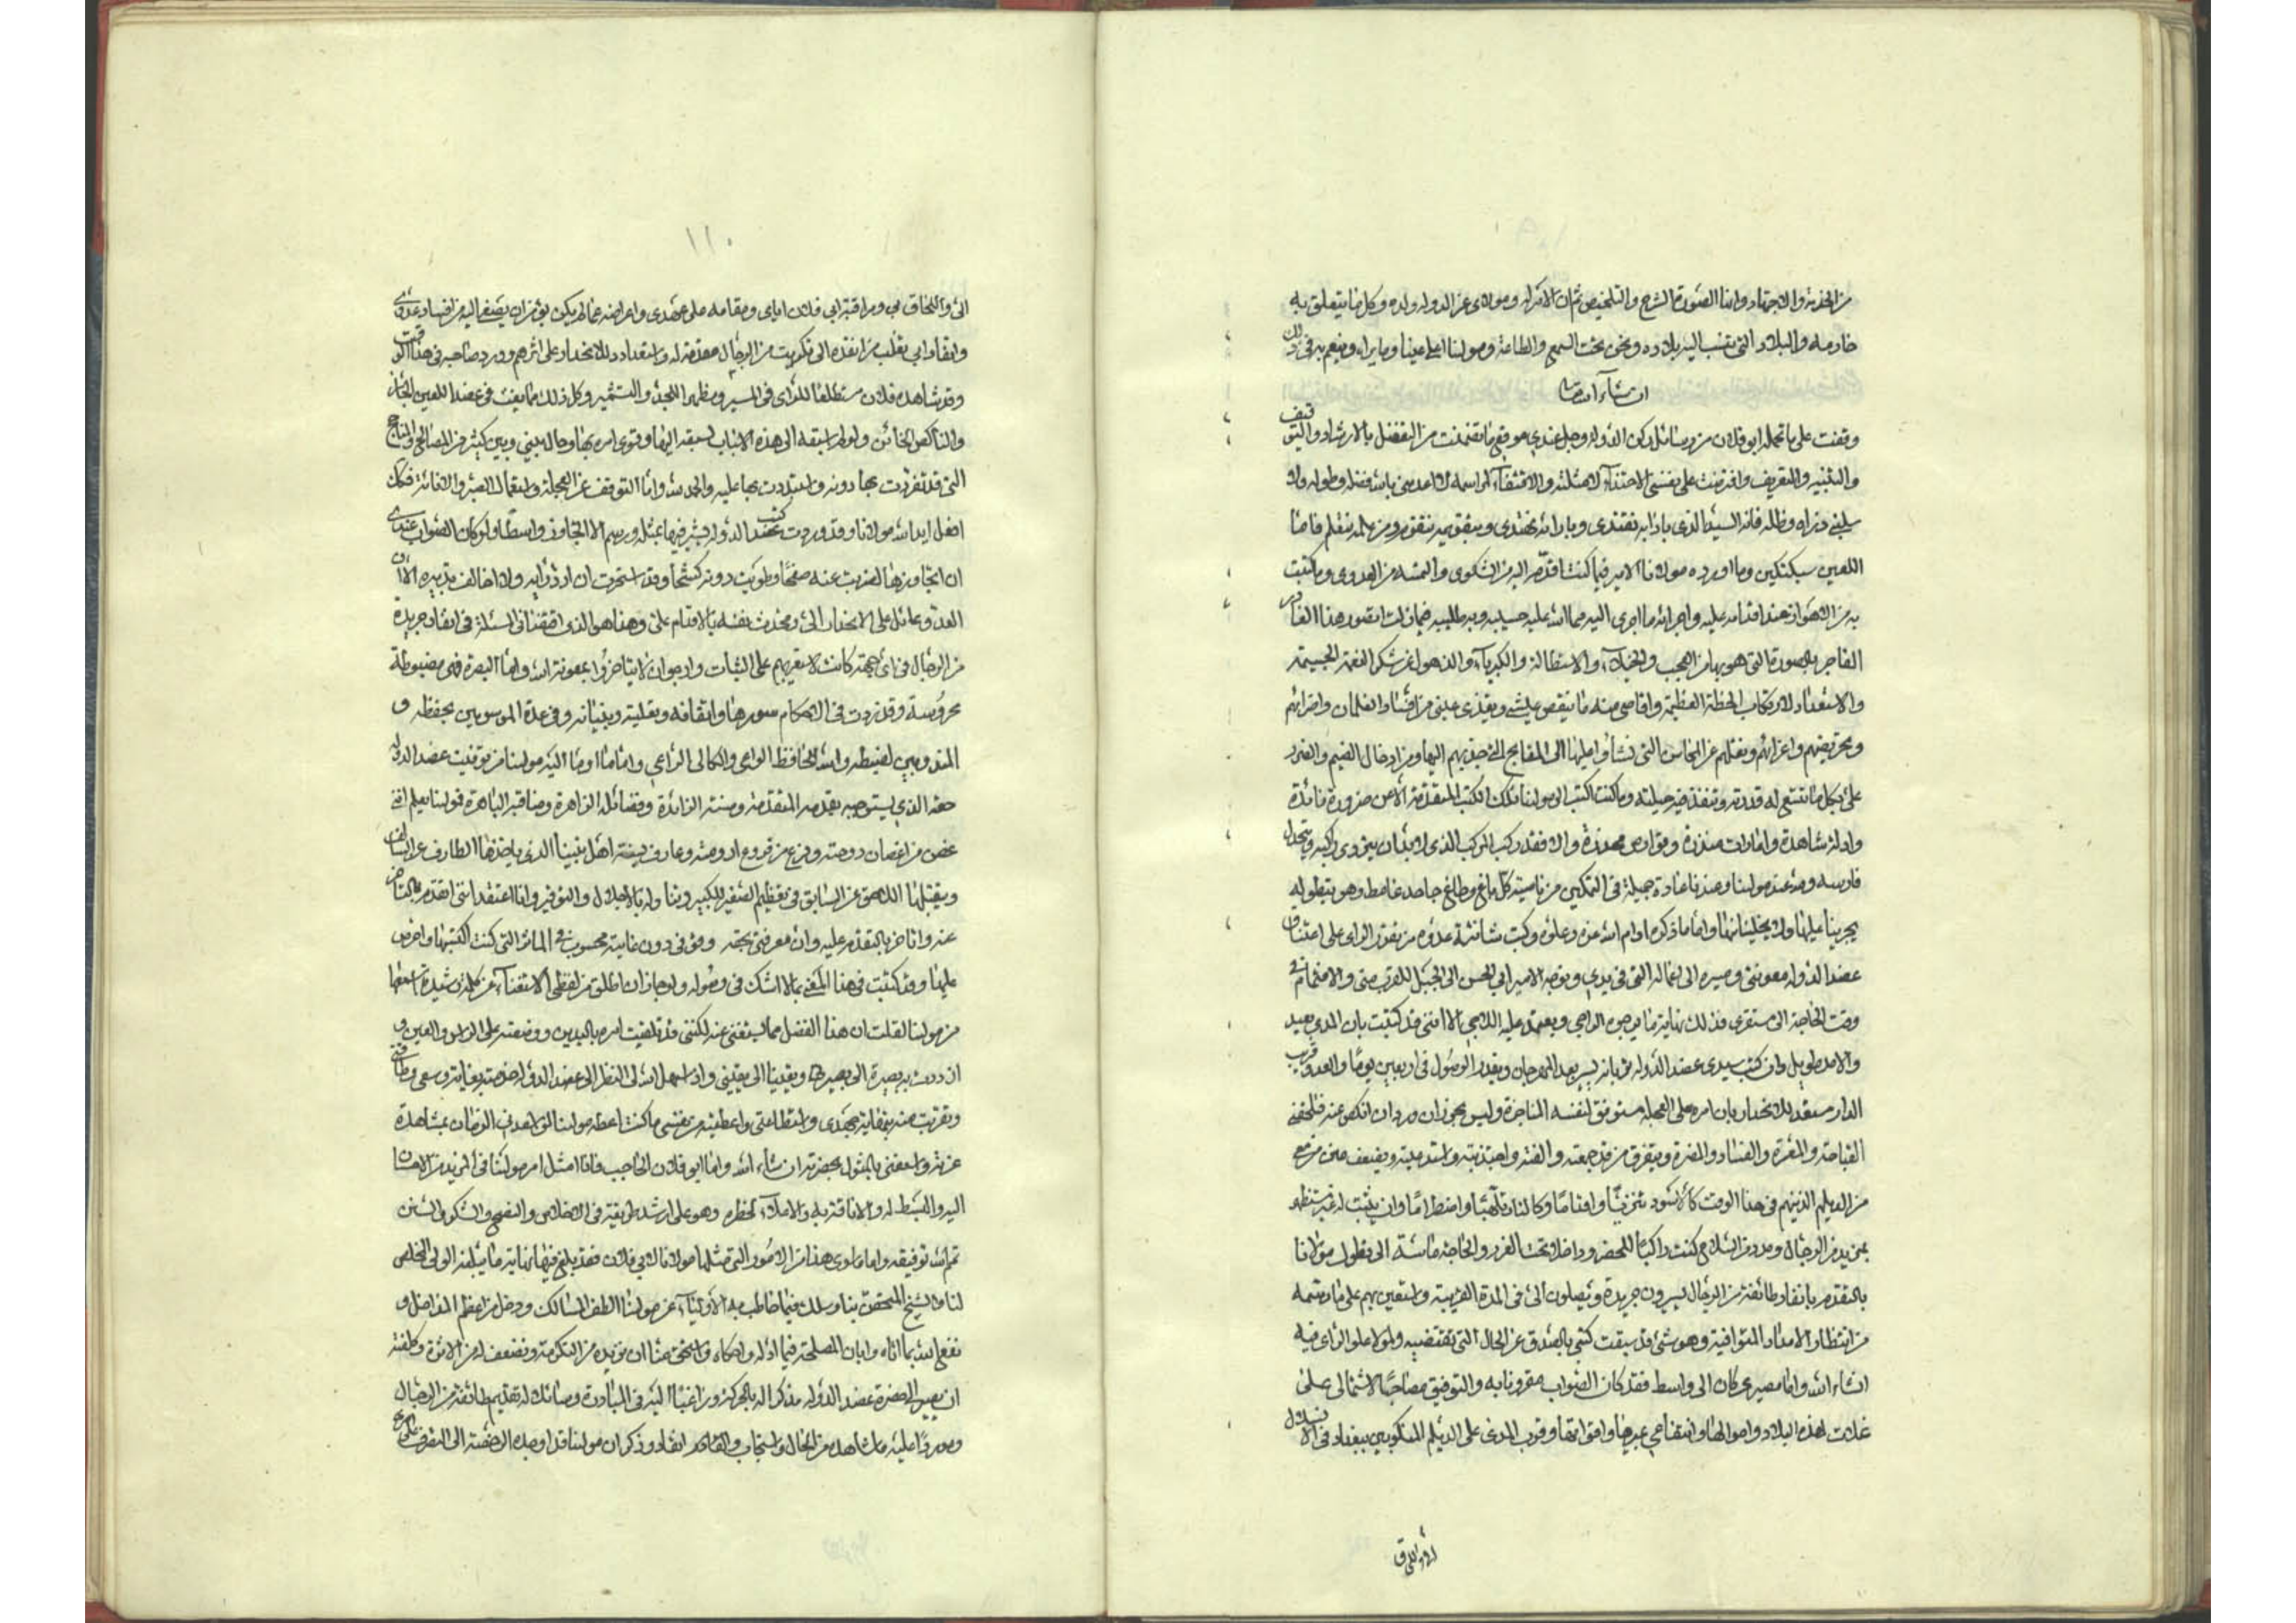 من الخدمة والاجتهاد وانما الصورة الشرح والتلخيص ثم ان الامر له ومولاى عز الدوله ولده وكل ما يتعلق به
خادمه والبلاد التى تنسب اليه بلاده ونحن تحت السمع والطاعة ومولينا اعلى عينا وما يراه وينعم به فى ذلك
ان شاء الله تعالى
وقفت على ما تحمله ابو فلان من رسائل ركن الدوله وجل عندى موقع ما تضمنت من التفضل بالارشاد والتوقيف
والتنبيه والتعريف وافترضت على نفسى الاحتذاء لامثلته والاقتفاء لمراسمه لا اعدمنى الله فضله وطوله ولا
سلبنى ذراه وظله فانه السيد الذى بادابه نقتدى وبارائه نهتدى وبتقويمه نتقوم ومن علمه نتعلم فاما
اللعين سبكتكين وما اورده مولانا الامير فيما كنت اقدم اليه من الشكوى والتمسه من العدوى وما كتبت
به من الاهواز عند اقدامه عليه واجرائه ما اجرى اليه مما الله عليه حسيبه وبه طليبه فما زلت اتصور هذا الغادر
الفاجر بالصورة التى هو بها من العجب والخيلاء والاستطالة والكبرياء والذهول عن شكر النعمة الجسيمة
والاستعداد لارتكاب الخطة العظيمة واقاصى منه ما ينقص عيشى ويقذى عينى من افساد الغلمان واضرائهم
وتحريضهم واغرائهم ونقلهم عن المحاسن التى نشأوا عليها الى المقابح التى جذبهم اليها ومن ادخال الضيم والضرر
على بكل ما تتسع له قدرته وتنفذ فيه حيلته وما كنت اكتب الى مولينا تلك الكتب المتقدمة الا عن ضرورة قائدة
وادلة شاهدة وامارات منذرة وقوارص محذرة والا فقد ركب المركب الذى لا بد ان يتردى راكبه ويتجدل
فارسه ومن عند مولينا وعندنا عادة جميلة فى التمكين من ناصية كل باغ وطاغ جاحد غامط وهو بتطوله
يجرينا عليها ولا يخلينا منها واما ما ذكره ادام الله عزه وعلوه وكبت شانئه وعدوه من نفوذ الراى على اعتناق
عضد الدوله معونتى ومسيره الى اعماله التى فى يدى وتوجه الامير ابى الحسن الى الجبل للقرب منى والانضمام فى
وقت الحاجة الى مستقرى فذلك نهاية ما يرجوه الراجى ويعتمد عليه اللاجى الا اننى قد كتبت بان المدى بعيد
والامد طويل وان كتب سيدى عضد الدوله بانه يسير بعد المهرجان ويقدر الوصول فى اربعين يوما والعدو قريب
الدار مستعد للانحدار بان امره على العجله مستوفق لنفسه المناجزة وليس يجوز ان انكص عنه فتلحقنى
القباحة والمعرة والفساد والمضرة ويتفرق من قد جمعته والفته واجتذبته واستدعيته ويضعف متن من معى
من الديلم الذين هم فى هذا الوقت كالاسود تحزبا واقداما وكالنار تلهبا واضطراما وان يثبت له غير مستظهر
بمزيد من الرجال ومدد من السلاح كنت راكبا للخطر وداخلا تحت الغرر والحاجة ماسة الى تطول مولانا
بالتقدم بانفاذ طائفة من الرجال يسيرون جريدة ويصلون الى فى المدة القريبة واستعين بهم على ما رسمه
من انتظار الامداد المتوافية وهو شئ قد سبقت كتبى بالصدق عن الحال التى تقتضيه ولمولانا علو الراى فيه
ان شاء الله واما مصيرى كان الى واسط فقد كان الصواب مقرونا به والتوفيق مصاحبا لاشتمالى على
غلات هذه البلاد واموالها وانتفاعى بميرها واقواتها وقرب المدى على الديلم المنكوبين ببغداد فى الانسلال
الى واللحاق بى ومراقبة ابى فلان اياى ومقامه على عهدى واعراضه عما لم يكن يؤمن ان يصغى اليه من افساد عدوى
وانفاذ ابى تغلب من انفذه الى تكريت من الرجال مقدمة له واستعداده للانحدار على اثرهم وورد صاحبه فى هذا الوقت
وقد شاهده فلان مستطلعا للراى فى المسير ومظهرا للجد والتشمير وكل ذلك مما يفت فى عضد اللعين الخائن
والناكص الخائن ولو لم اسبقه الى هذه الاسباب لسبقه اليها وقوى امره بها وحال بينى وبين كثير من المصالح والمناجح
التى قد تفردت بها دونه واستبددت بها عليه والحمد لله واما التوقف عن العجلة واستعمال الصبر والاناة فكان
افعل ايد الله مولانا وقد وردت كتب عضد الدوله يشير فيها بمثله ورسم الا اتجاوز واسطا ولو كان الصواب عندى
ان اتجاوزها لضربت عنه صفحا وطويت دونه كشحا وقد استخرت ان ارد رايه ولا اخالف تدبيره الا ان
العدو عامل على الانحدار الى ومحدث نفسه بالاقدام على وهذا هو الذى اقتضانى المسئلة فى انفاذ جريدة
من الرجال فى اى جهة كانت لاستعين بهم على الثبات وارجو ان لا يتاخروا بمعونة الله واما البصرة فهى مضبوطة
محروسة وقد زدت فى احكام سورها واتقانه وتعليته وبنيانه وفى عدة الموسومين بحفظه و
المندوبين لضبطه والله الحافظ الواعى والكالى الراعى واما ما اوما اليه مولينا من توفيت عضد الدوله
حقه الذى يستوجبه بقدمه المتقدمة ومنته الزائدة وفضائله الزاهرة ومناقبه الباهرة فمولينا يعلم انى
غصن من اغصان دوحته وفرع من فروع ارومته وعارف بسنة اهل بيتنا الذى ياخذها الطارف عن السالف
ويتقبلها اللاحق عن السابق فى تعظيم الصغير للكبير وتناوله بالاجلال والتوقير وانا اعتقد اننى اتقدم بالتاخر
عنه واتاخر بالتقدم عليه وان معرفتى بحقه ووقوفى دون غايته محسوب فى الماثر التى كنت اكتسبها واحرص
عليها وقد كتبت فى هذا المعنى بما لا اشك فى وصوله ولو جاز ان اطلق من لفظى الاستغناء عن كلمة رشيدة استمعها
من مولينا لقلت ان هذا الفصل مما يستغنى عنه لكننى قد تلقيت امره باليدين ووضعته على الراس والعين و
ان زدت به بصيرة الى بصيرتى ويقينا الى يقينى واذا سهل الله لى النظر الى عضد الدوله خدمته بغاية وسعى وطاقتى
وتقربت منه بنهاية جهدى واستطاعتى واعطيته من نفسى ما كنت اعطه مولينا لو اسعدنى الزمان بمشاهدة
عزته واسعفنى بالمثول بحضرته ان شاء الله واما ابو فلان الحاجب فانا امثل امر مولينا فى المزيد من الاحسان
اليه والبسط له والاناقة به والاعلاء لخطره وهو على ارشد طريقة فى الاخلاص والنصح والشكر والسنن
تمم الله توفيقه واما ما طوى هذا من الامور التى مثلها مولانا لابى فلان فقد بلغ فيها نهاية ما يبلغه الولى المخلص
لنا والشيخ المتحقق بنا وسلك فيما خاطب به الاولياء عن مولينا الطف المسالك ودخل من اعظم المداخل و
نفع الله بما اتاه وابان المصلحة فيما ادله واحكاه واستحق منا ان نزيده من التكرمة ونضعف له من الاثرة وكلفته
ان يصير الى حضرة عضد الدوله مذكرا له بالحركة وراغبا اليه فى المبادرة وسائلا له تقديم طائفة من الرجال
وموردا عليه ما شاهده من الحال واستجاب والقاهر انفاذ وذكر ان مولينا قد اوجده الرخصة الى التصرف على امرى